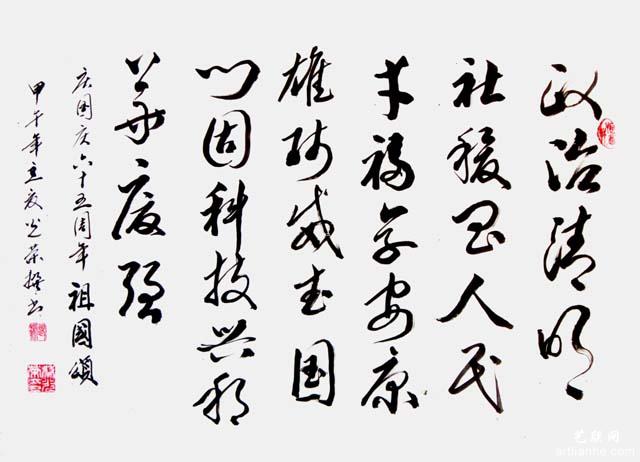 政治清明
社稷昌人民
幸福享安康
雄师威武国
门固科技兴邦
华夏强
庆国庆六十五周年 祖國頌
甲午年立夏光荣撰书
艺联网
artlianhe.com